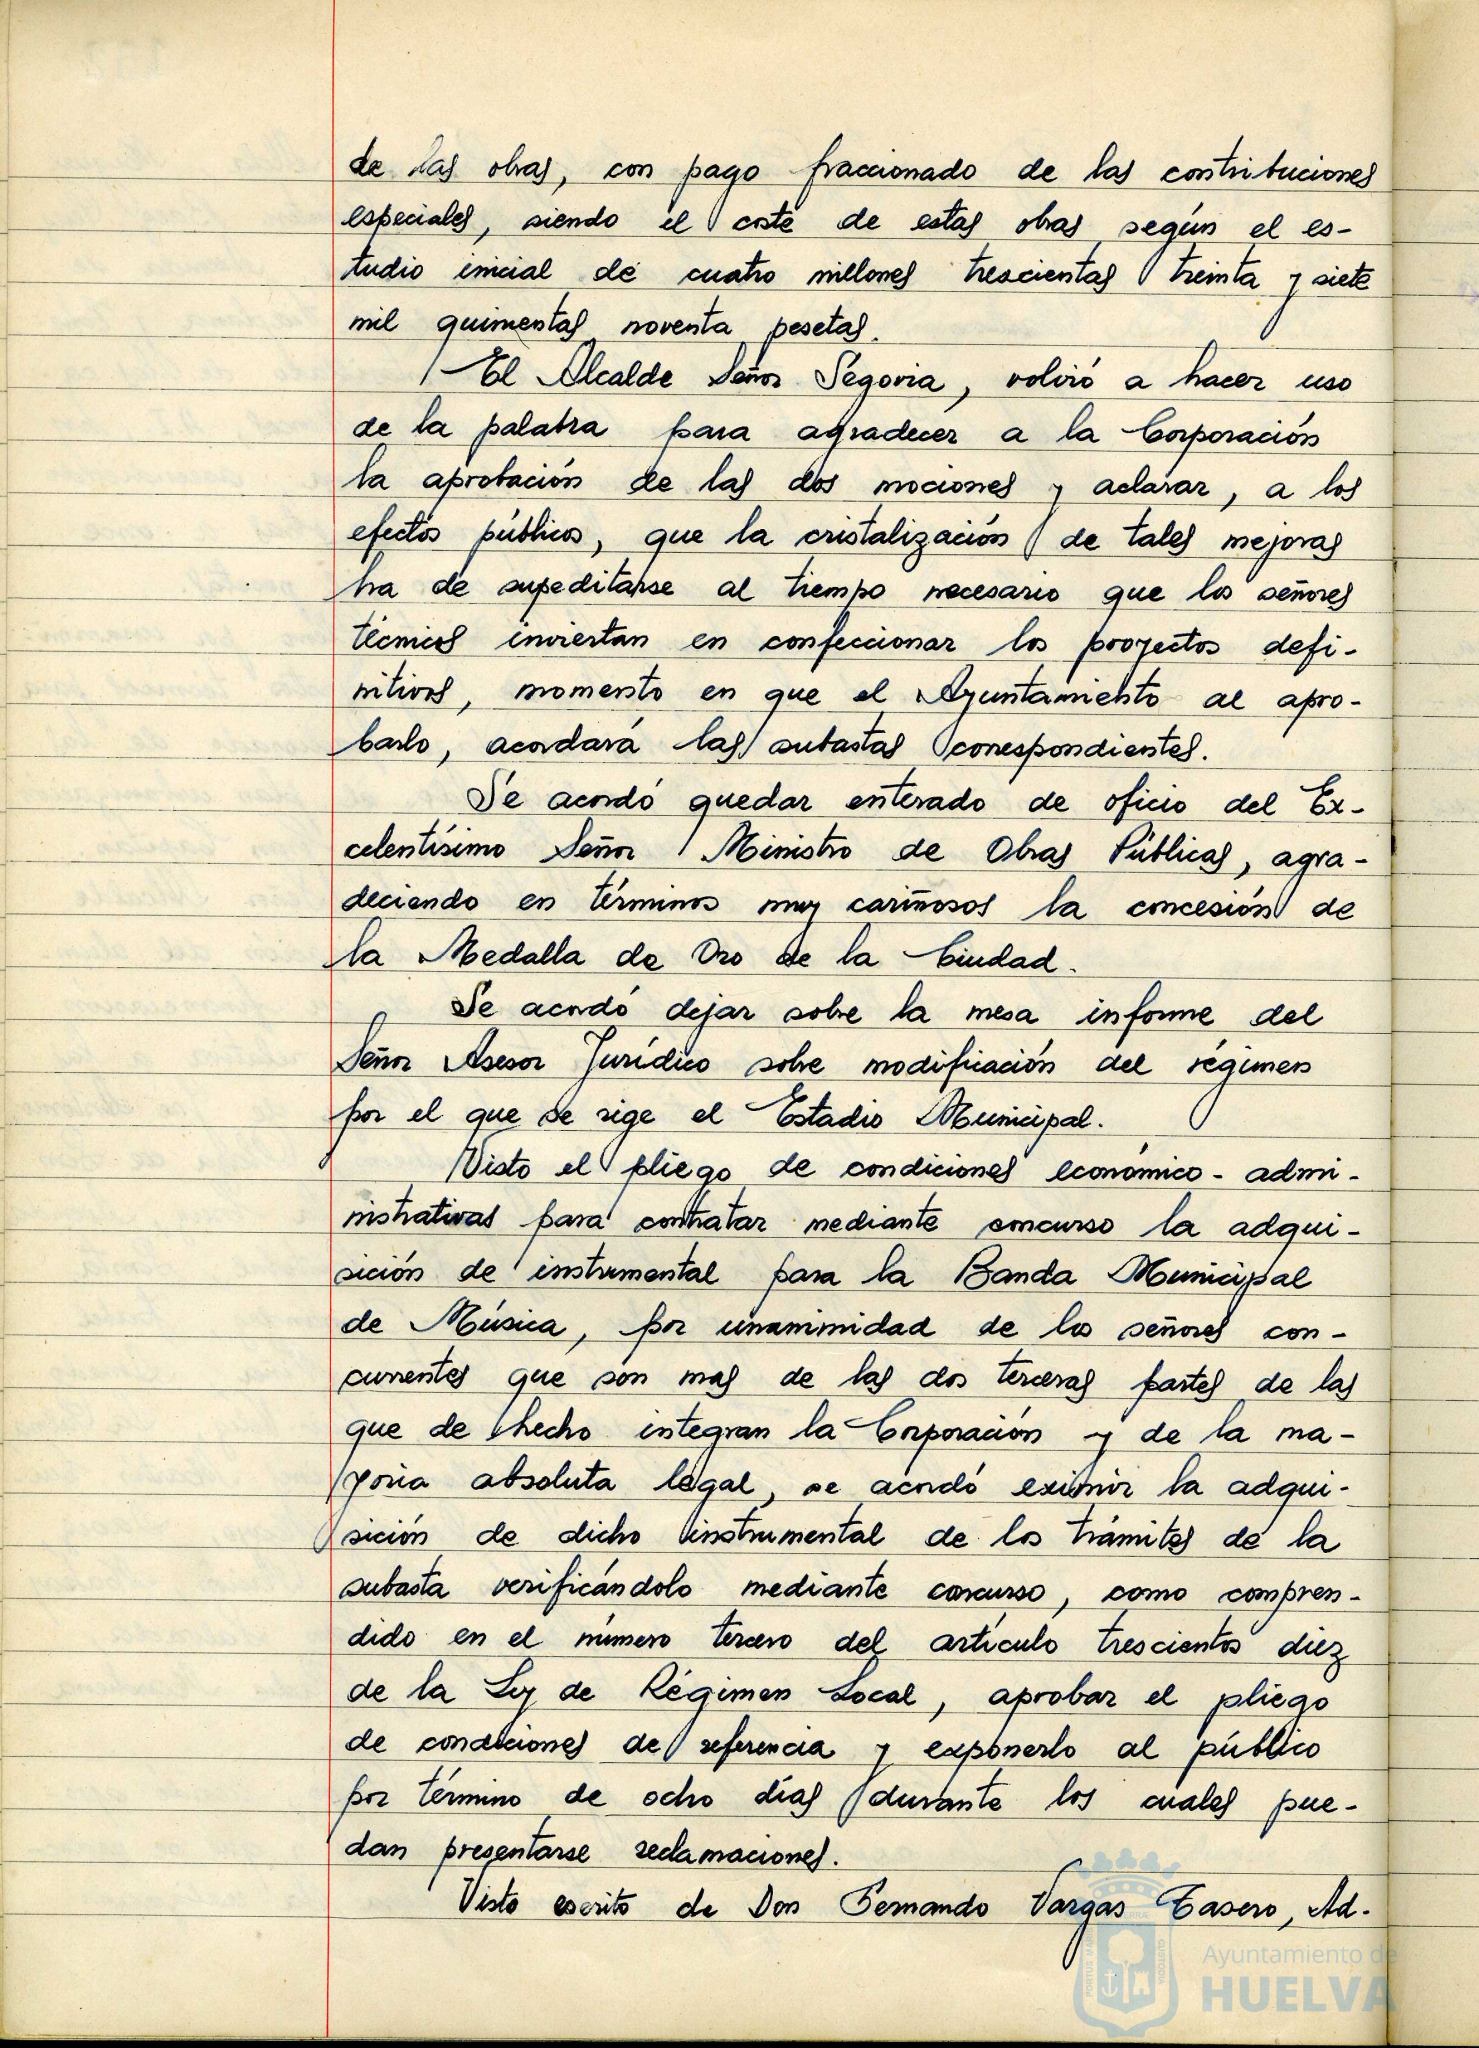 de las obras, con pago fraccionado de las contribuciones
especiales, siendo el coste de estas obras según el es-
tudio inicial de cuatro millones trescientas treinta y siete
mil quinientas noventa pesetas.
El Alcalde Señor Segovia, volvió a hacer uso
de la palabra para agradecer a la Corporación
la aprobación de las dos mociones y aclarar, a los
efectos públicos, que la cristalización de tales mejoras
ha de supeditarse al tiempo necesario que los señores
técnicos inviertan en confeccionar los proyectos defi-
nitivos, momento en que el Ayuntamiento al apro-
barlo, acordará las subastas correspondientes.
Se acordó quedar enterado de oficio del Ex-
celentísimo Señor Ministro de Obras Públicas, agra-
deciendo en términos muy cariñosos la concesión de
la Medalla de Oro de la Ciudad.
Se acordó dejar sobre la mesa informe del
Señor Asesor Jurídico sobre modificación del régimen
por el que se rige el Estadio Municipal.
Visto el pliego de condiciones económico-admi-
nistrativas para contratar mediante concurso la adqui-
sición de instrumental para la Banda Municipal
de Música, por unanimidad de los señores con-
currentes que son mas de las dos terceras partes de las
que de hecho integran la Corporación y de la ma-
yoria absoluta legal, se acordó eximir la adqui-
sición de dicho instrumental de los trámites de la
subasta verificándolo mediante concurso, como compren-
dido en el número tercero del artículo trescientos diez
de la Ley de Régimen Local, aprobar el pliego
de condiciones de referencia y exponerlo al público
por término de ocho días durante los cuales pue-
dan presentarse reclamaciones.
Visto escrito de Don Fernando Vargas Casero, Ad-
Ayuntamiento de
HUELVA